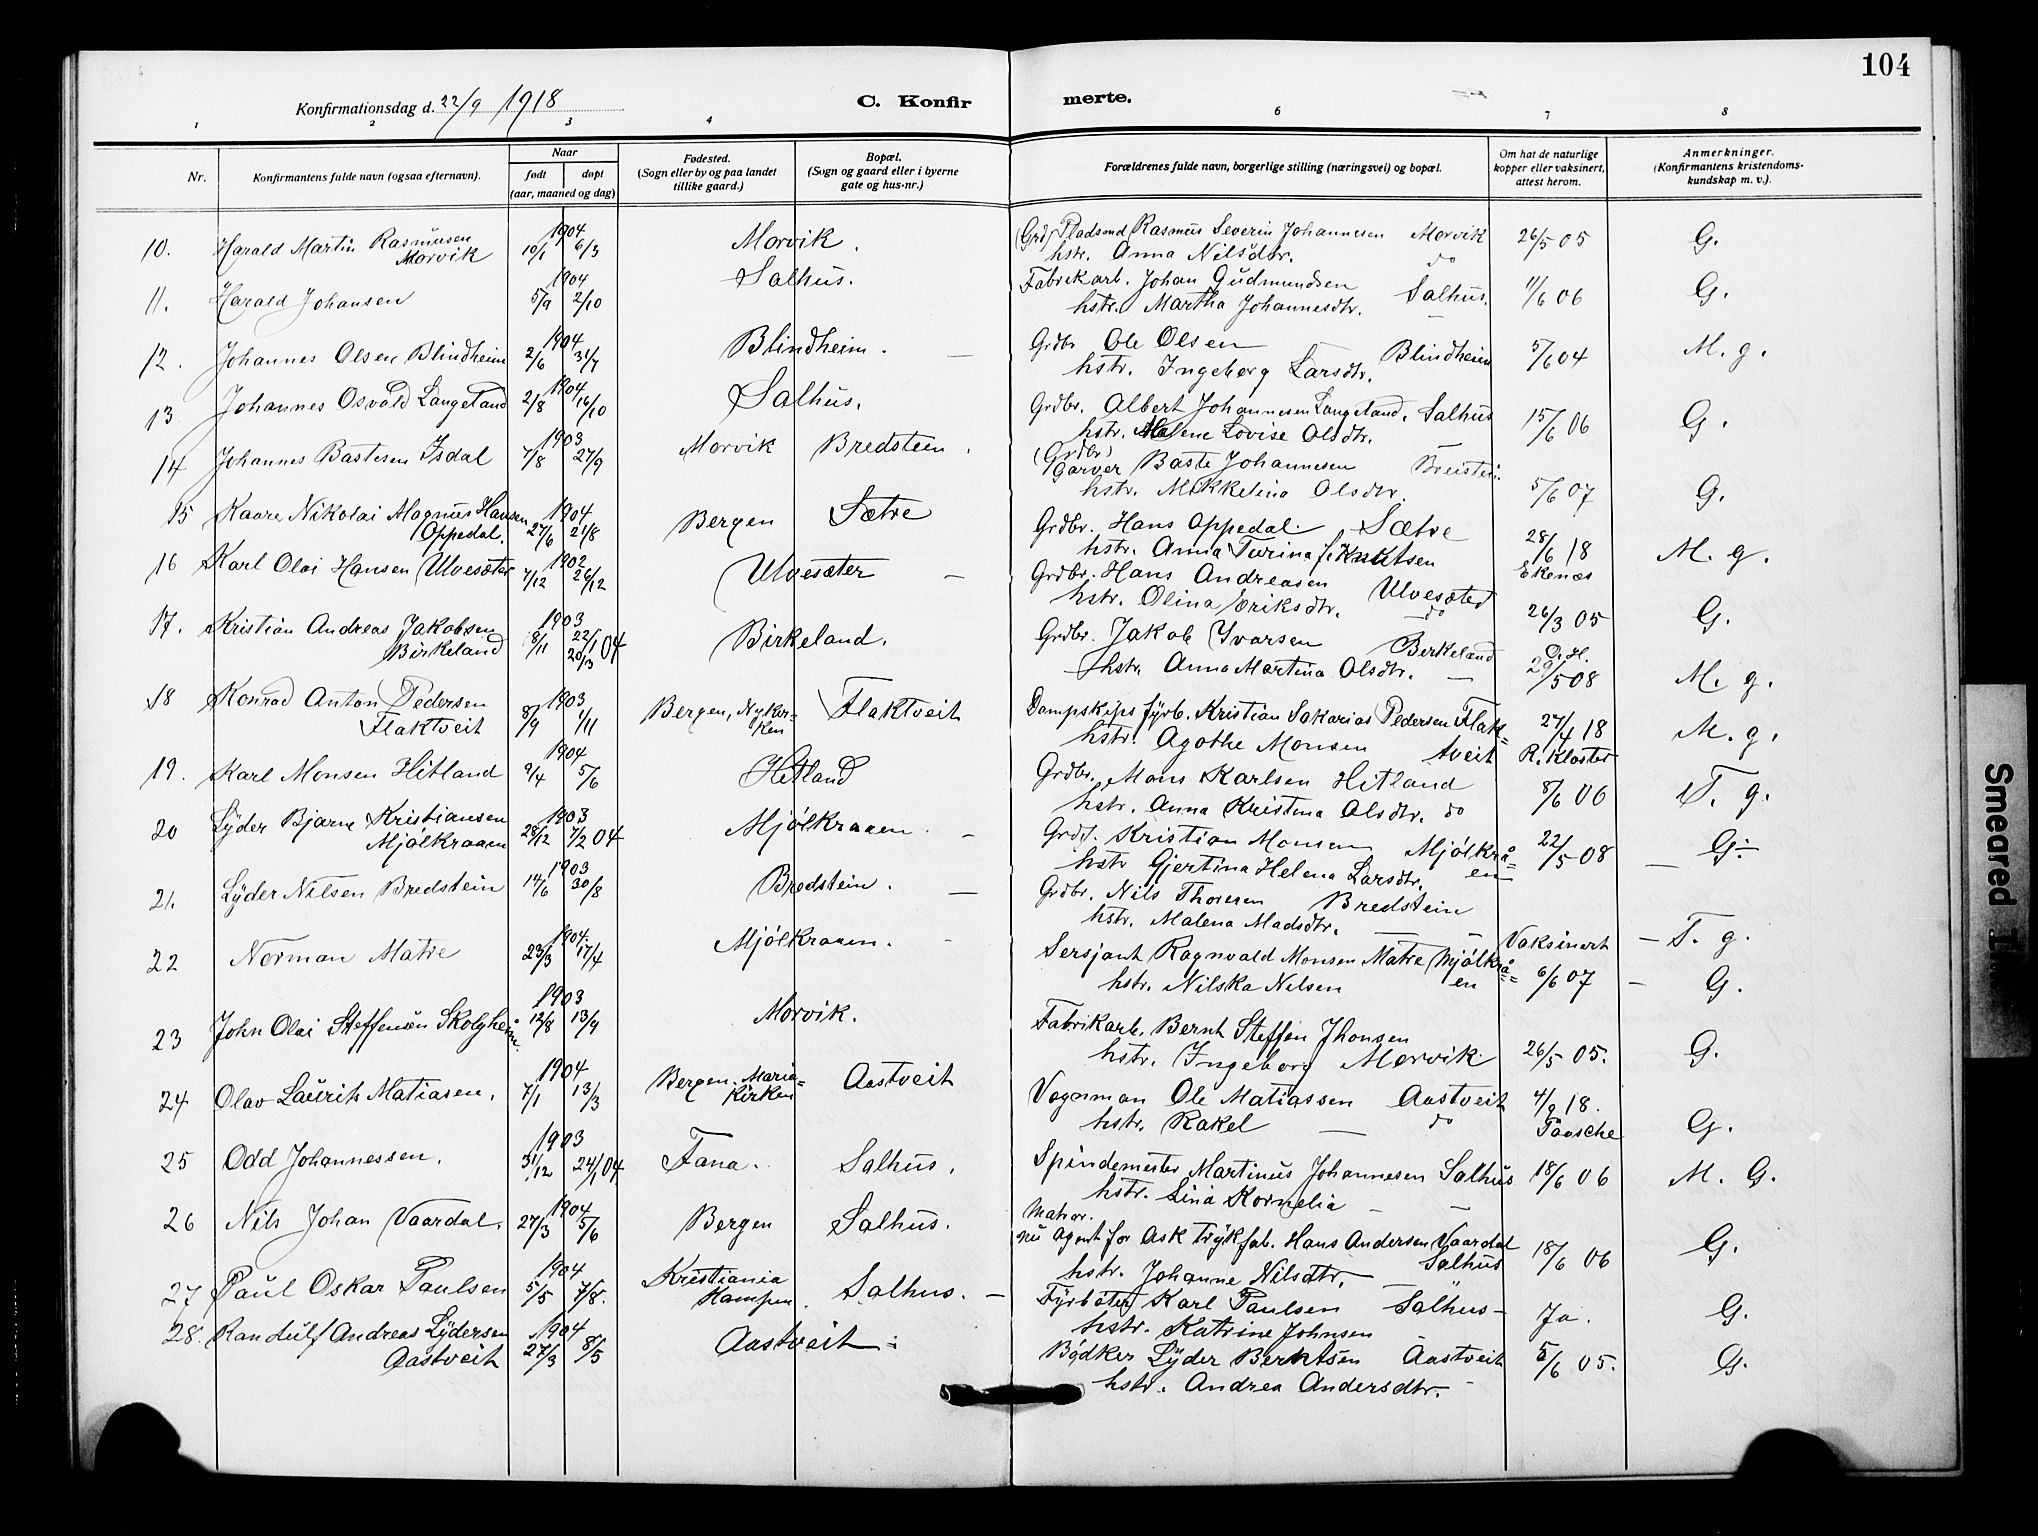 104
Konfirmationsdag d. 22/9 1918
C. Konfir merte.
1 2 3 4 6 7 8
Nr.
Konfirmantens fulde navn (ogsaa efternavn).
Naar
født døpt
(aar, maaned og dag)
Fødested.
(Sogn eller by og paa landet
tillike gaard.)
Bopæl.
(Sogn og gaard eller i byerne
gate og hus-nr.)
Forældrenes fulde navn, borgerlige stilling (næringsvei) og bopæl.
Om hat de naturlige
kopper eller vaksinert,
attest herom.
Anmerkninger.
(Konfirmantens kristendoms-
kundskap m. v.).
10. Harald Martin Rasmusen Morvik 1904 10/1 6/3 Morvik. (Grd) Pladsmd Rasmus Severin Johannesen Morvik 26/5 05 G.
hstr. Anna Nilsdtr. do
11. Harald Johansen 1904 5/9 2/10 Salhus. Fabrikarb. Johan Gudmundsen Salhus. 11/6 06 G.
hstr. Martha Johannesdtr. —
12. Johannes Olsen Blindheim 1904 2/6 31/7 Blindheim. — Grdbr Ole Olsen Blindheim 5/6 04 M. g.
hstr. Ingeborg Larsdtr.
13 Johannes Osvald Langeland 1904 2/8 16/10 Salhus. Grdbr. Albert Johannesen Langeland. Salhus 15/6 06 G.
hstr. Malene Lovise Olsdtr. —
14 Johannes Bastesen Isdal 1903 7/8 27/9 Morvik Bredsteen. (Grdbr) Garver Baste Johannesen Breistein. 5/6 07 G.
hstr. Mikkelina Olsdtr.
15 Kaare Nikolai Magnus Hansen Oppedal. 1904 27/6 21/8 Bergen Sætre Grdbr. Hans Oppedal Sætre 28/6 18 Ekenæs M. g.
hstr. Anna Turina f. Knutsen
16 Karl Olai Hansen Ulvesæter 1902 7/12 26/12 Ulvesæter — Grdbr. Hans Andreasen Ulvesæted 26/3 05 G.
hstr. Olina Eriksdtr. do
17. Kristian Andreas Jakobsen Birkeland 1903 8/11 22/1 04 20/3 Birkeland. Grdbr. Jakob Ivarsen Berkeland O. H. 29/5 08 M. g.
hstr. Anna Martina Olsdtr. —
18 Konrad Anton Pedersen Flaktveit 1903 8/9 1/11 Bergen, Nykir-ken Flaktveit Dampskips fyrb. Kristian Sakarias Pedersen Flak-tveit 27/4 18 R. Kloster M. g.
hstr. Agathe Monsen
19. Karl Monsen Hitland 1904 9/4 5/6 Hitland Grdbr. Mons Karlsen Hitland 8/6 06 T. g.
hstr. Anna Kristina Olsdtr. do
20 Lyder Bjarne Kristiansen Mjølkraaen 1903 28/12 7/2 04 Mjølkraaen. — Kristian Monsen Mjølkrå=en 22/5 08 — G÷
hstr Gjertina Helena Larsdtr.
21. Lyder Nilsen Bredstein 1903 14/6 30/8 Bredstein. — Grdbr. Nils Thoresen Bredstein Vaksinert — T. g.
hstr. Malena Madsdtr. — —
22 Norman Matre 1904 23/3 17/4 Mjølkraaen. - Sersjant Ragnvald Monsen Matre Mjølkrå=en 6/6 07 – G.
hstr. Nilska Nilsen
23 John Olai Steffensen 1903 12/8 13/9 Morvik. Fabrikarb. Bernt Steffen Jhonsen 26/5 05. G.
hstr. Ingeborg Morvik
24 Olav Laurits Matiasen. 1904 7/1 13/3 Bergen. Maria=kirken Aastveit Vognman Ole Matiassen Aastveit 4/9 18. Paasche G.
hstr. Rakel — do
25 Odd Johannessen. 1903 31/12 24/1 04 Fana. Salhus. Spindemester Martinus Johannesen Salhus 18/6 06 M. G.
hstr. Lina Kornelia — —
26 Nils Johan Vaardal. 1904 27/3 5/6 Bergen Salhus. Matros. nu Agent for Ask trykfab. Hans Andersen Vaardal Salhus 18/6 06 G.
hstr. Johanne Nilsdtr.
27 Paul Oskar Paulsen 1904 5/5 7/8. Kristiania Kampen. Salhus. — Fyrbøter Karl Paulsen Salhus – Ja. G.
hstr. Katrine Johnsen
28. Randulf Andreas Lydersen Aastveit 1904 27/3 8/5 Aastveit Bødker Lyder Berntsen Aastveit 5/6 05. G.
hstr. Andrea Andersdtr. -
Smeared